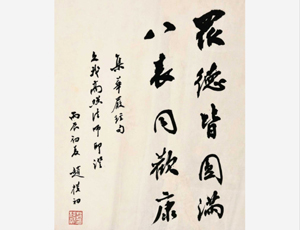 众德皆圆满
八表同欢康
集华严经句
上我高旻法师印证
丙辰初夏 赵朴初